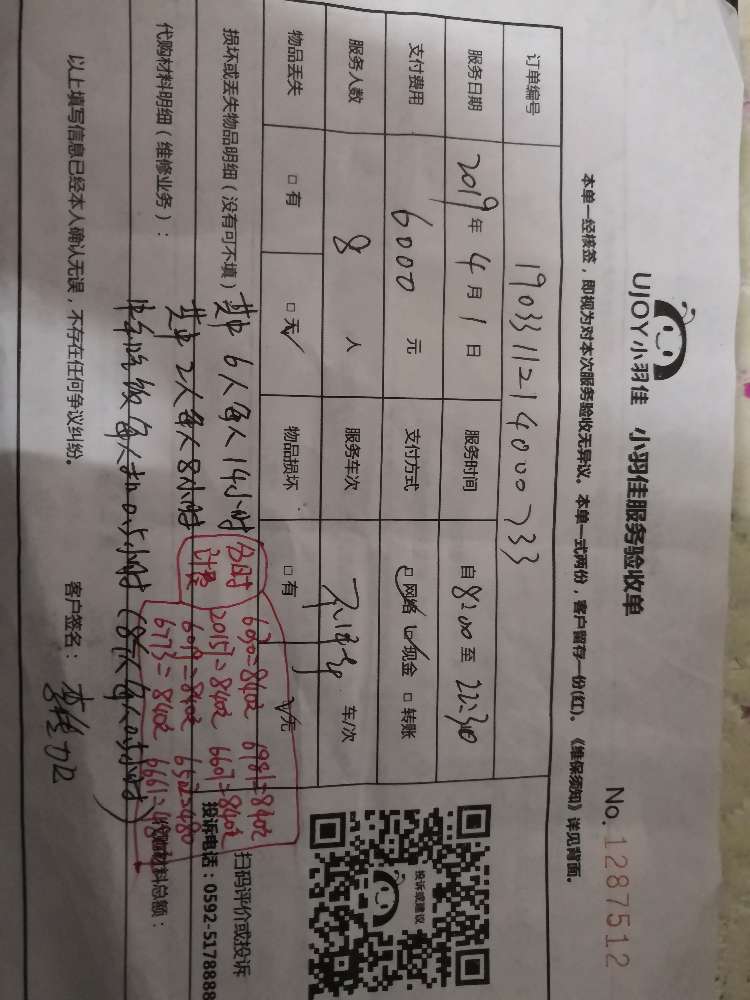 UJOY小羽佳 小羽佳服务验收单
No. 1287512
本单一经核签，即视为对本次服务验收无异议。本单一式两份，客户留存一份(红)。《维保须知》详见背面。
订单编号 1903311214000733
服务日期 2019年4月1日 服务时间 自8:00至22:30
支付费用 6000元 支付方式 □网络 □现金 □转账
服务人数 8人 服务车次 车/次
物品丢失 □有 □无 物品损坏 □有 □无
损坏或丢失物品明细（没有可不填） 其中6人每人14小时
其中2人每人8小时
代购材料明细（维修业务）：
中午吃饭每人扣0.5小时（8人每人0.5小时）
代购材料总额：
合时
6981=840元
2015=840元
扫码评价或投诉
投诉电话：0592-5178888
投诉或建议
以上填写信息已经本人确认无误，不存在任何争议纠纷。
客户签名：